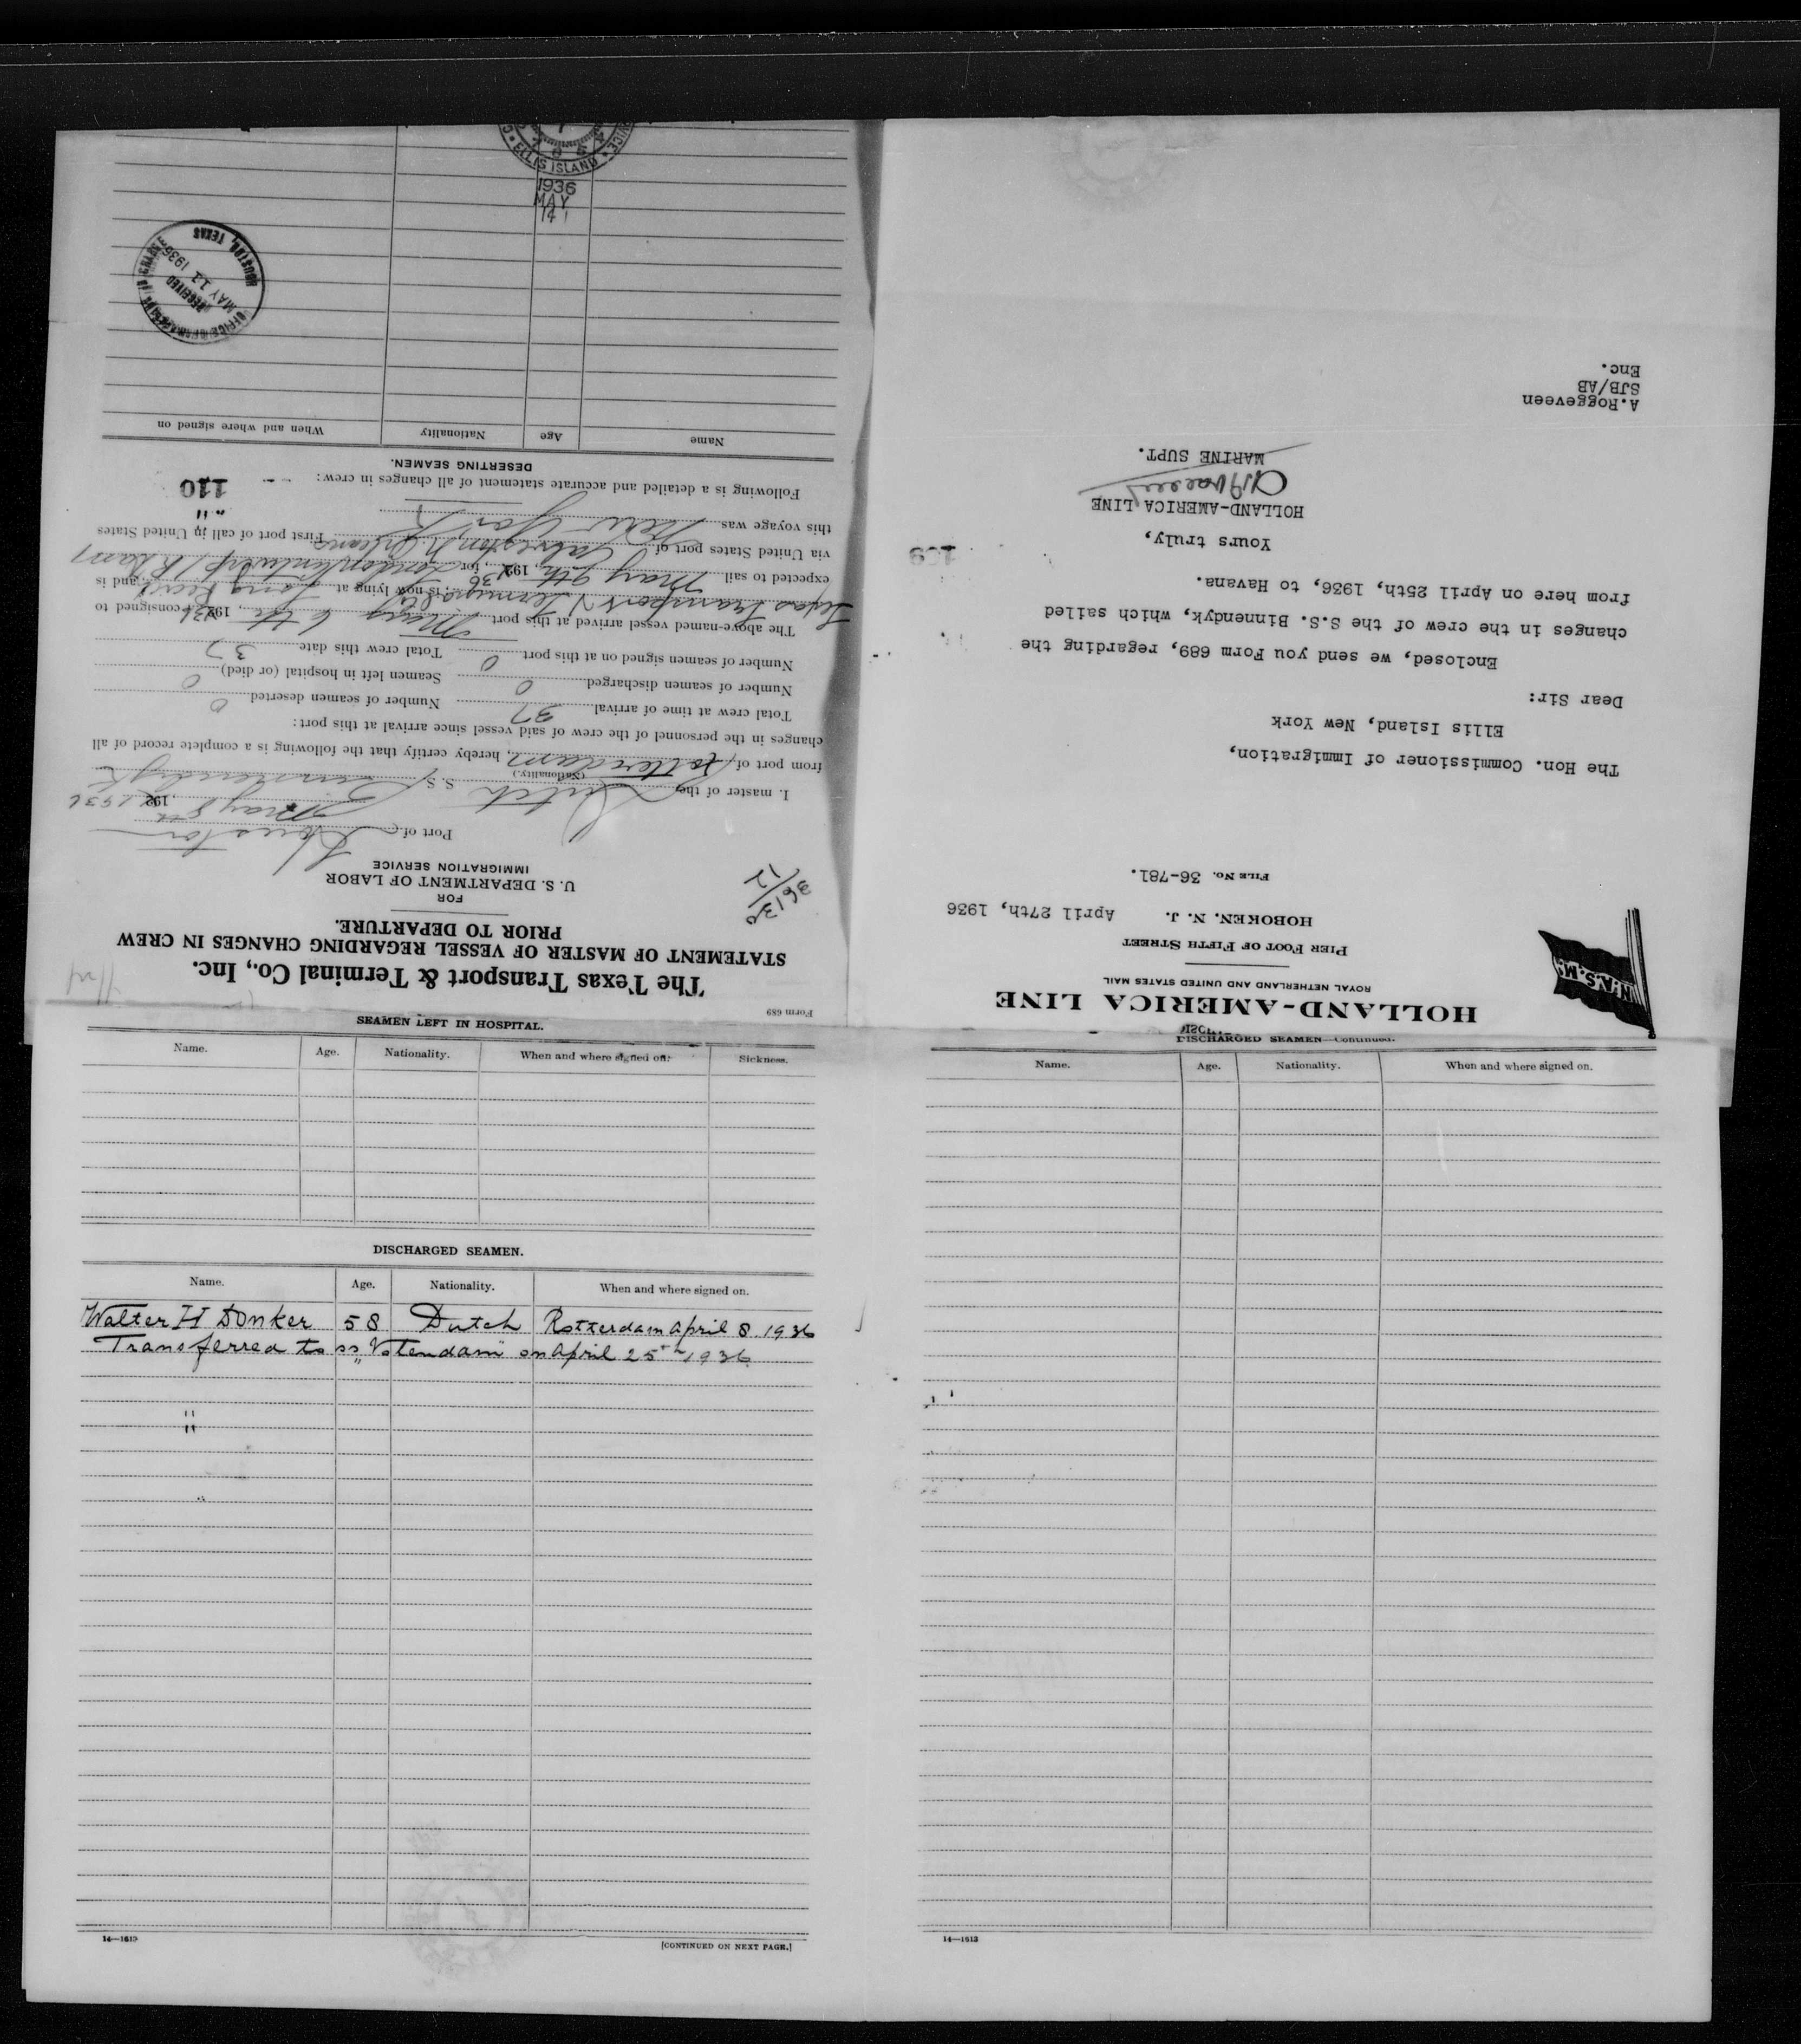 HOLLAND-AMERICA LINE
ROYAL NETHERLAND AND UNITED STATES MAIL
N.A.S.M.
PIER FOOT OF FIFTH STREET
HOBOKEN, N. J. April 27th, 1936
FILE NO. 36-781.
The Hon. Commissioner of Immigration,
Ellis Island, New York
Dear Sir:
Enclosed, we send you Form 689, regarding the
changes in the crew of the S.S. Binnendyk, which sailed
from here on April 25th, 1936, to Havana.
Yours truly,
HOLLAND-AMERICA LINE
MARINE SUPT.
A.Roggeveen
SJB/AB
Enc.
Form 689
The Texas Transport & Terminal Co., Inc.
STATEMENT OF MASTER OF VESSEL REGARDING CHANGES IN CREW
PRIOR TO DEPARTURE.
FOR
U. S. DEPARTMENT OF LABOR
IMMIGRATION SERVICE
36130
12
Port of Houston
May 8th, 192 1936
I, master of the Dutch S. S. Binnendyk
(Nationality.)
from port of Rotterdam, hereby certify that the following is a complete record of all
changes in the personnel of the crew of said vessel since arrival at this port:
Total crew at time of arrival 37 Number of seamen deserted 0
Number of seamen discharged 0 Seamen left in hospital (or died) 0
Number of seamen signed on at this port 0 Total crew this date 37
The above-named vessel arrived at this port May 6th, 1936, consigned to
Texas Transport & Terminal Co; is now lying at Long Reach, and is
expected to sail May 9th, 1936, for London Antwerp / R'dam
via United States port of Galveston N Orleans First port of call in United States
this voyage was New York
Following is a detailed and accurate statement of all changes in crew: 110
DESERTING SEAMEN.
Name Age Nationality When and where signed on
RECEIVED
MAY 11 1936
HOUSTON, TEXAS
ELLIS ISLAND
1936
MAY
14
SEAMEN LEFT IN HOSPITAL.
Name. Age. Nationality. When and where signed on. Sickness.
DISCHARGED SEAMEN.
Name. Age. Nationality. When and where signed on.
Walter H Donker 58 Dutch Rotterdam April 8 1936
Transferred to ss "Votendam" on April 25th 1936
14—1613 [CONTINUED ON NEXT PAGE.]
DISCHARGED SEAMEN—Continued.
Name. Age. Nationality. When and where signed on.
14—1613